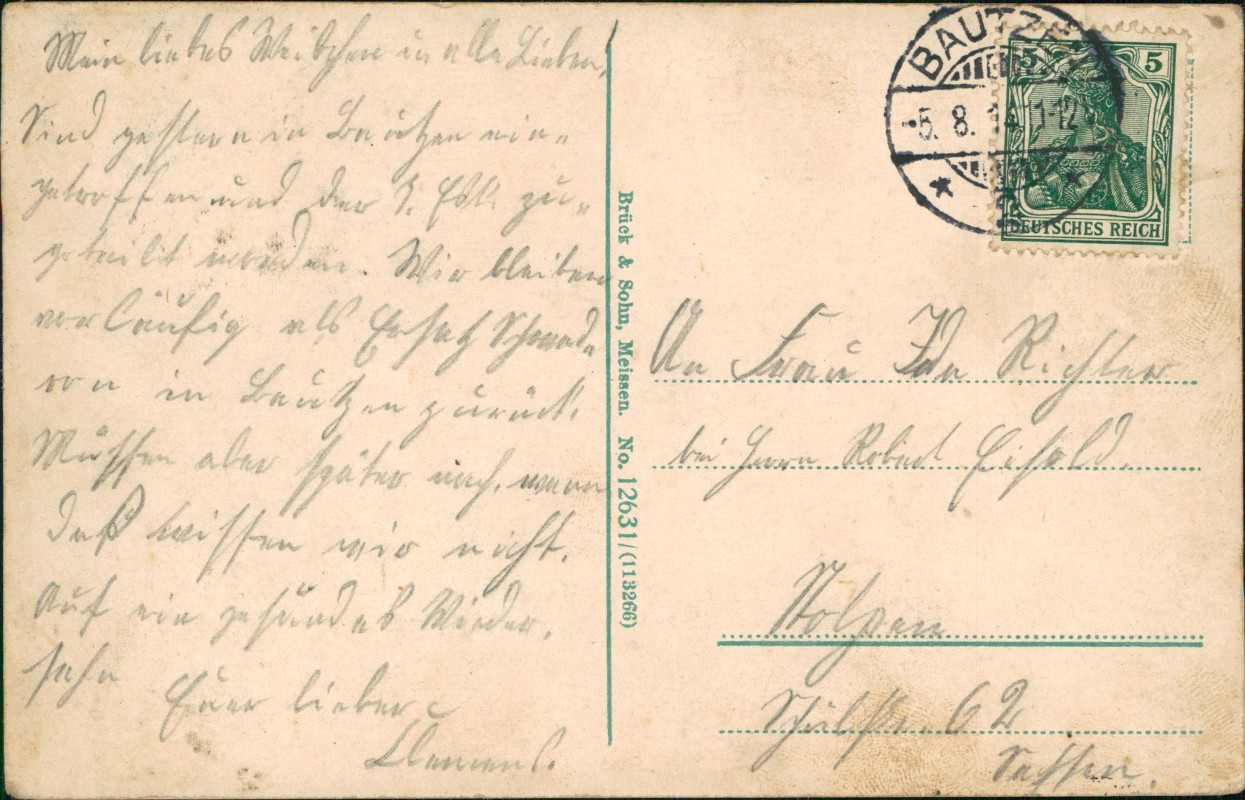 Mein liebes Weibchen u alle Lieben,
Sind gestern in Bautzen ein=
getroffen und der 1. Esk. zu=
geteilt worden. Wir bleiben
vorläufig als Ersatz Schwad=
ron in Bautzen zurück.
Müssen aber später nach, wann
daß wissen wir nicht.
Auf ein gesundes Wieder=
sehn
Euer lieber
Clemens.
Brück & Sohn, Meissen. No. 12631/(113266)
BAUTZEN
5. 8. 14 11-12
5 5
DEUTSCHES REICH
An Frau Ida Richter
bei Herrn Robert Eisold.
Stolpen
Schulstr. 62
Sachsen.